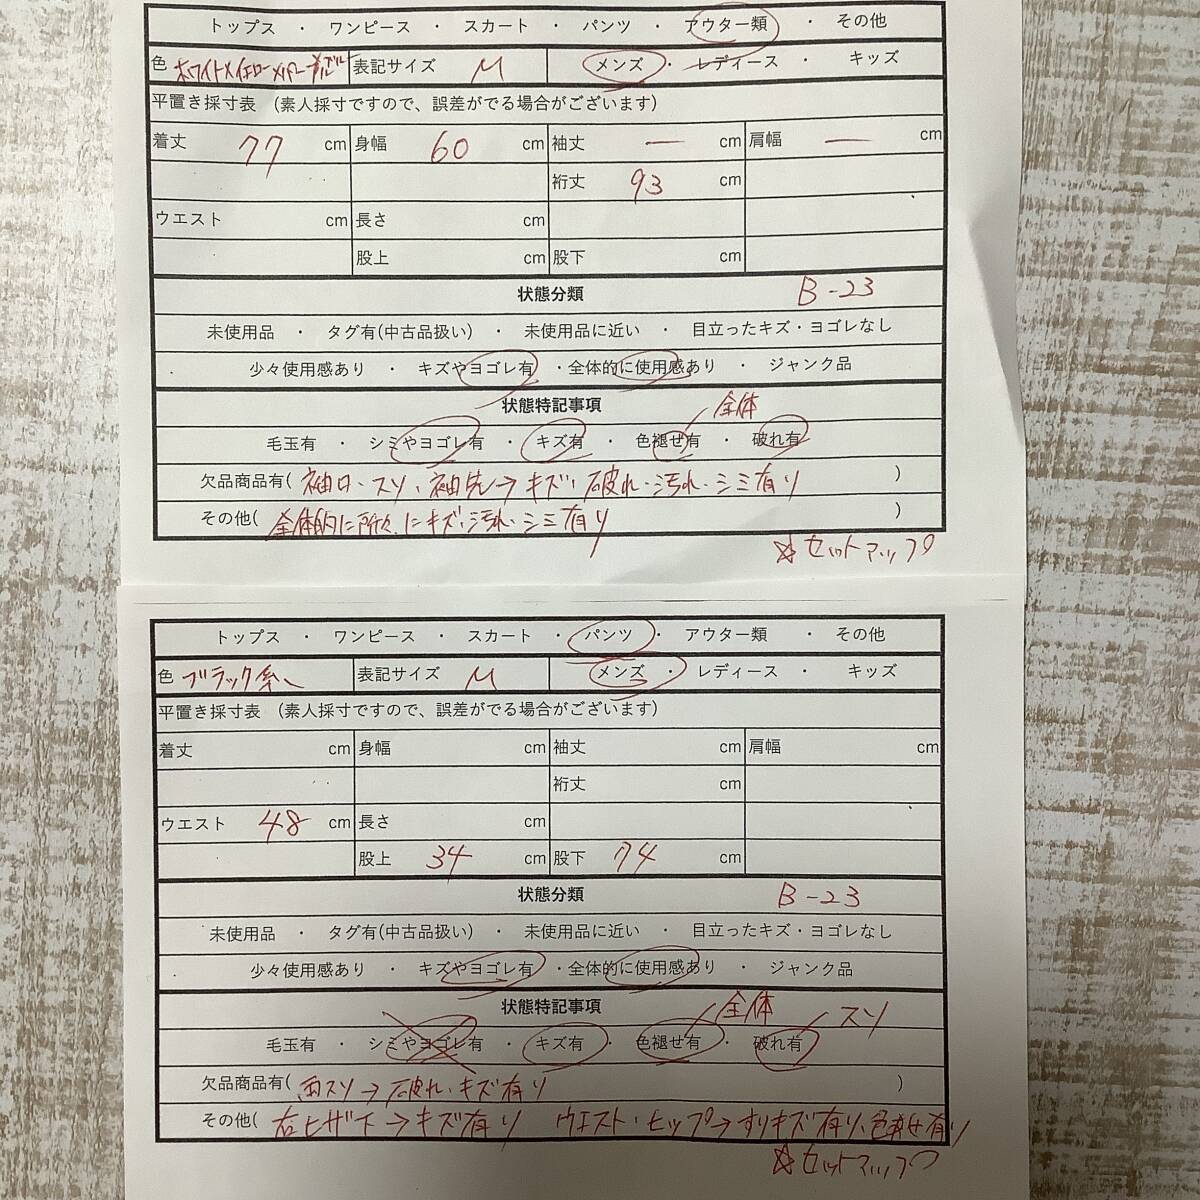 トップス ・ ワンピース ・ スカート ・ パンツ ・ アウター類 ・ その他
色 ホワイト×イエロー× 表記サイズ M メンズ ・ レディース ・ キッズ
平置き採寸表 （素人採寸ですので、誤差がでる場合がございます）
着丈 77 cm 身幅 60 cm 袖丈 ー cm 肩幅 ー cm
裄丈 93 cm
ウエスト cm 長さ cm
股上 cm 股下 cm
状態分類 B-23
未使用品 ・ タグ有(中古品扱い) ・ 未使用品に近い ・ 目立ったキズ・ヨゴレなし
少々使用感あり ・ キズやヨゴレ有 ・全体的に使用感あり ・ ジャンク品
状態特記事項 全体
毛玉有 ・ シミやヨゴレ有 ・ キズ有 ・ 色褪せ有 ・ 破れ有
欠品商品有( 袖口・スソ・袖先→キズ・破れ・汚れ・シミ有り )
その他( 全体的に所々にキズ・汚れ・シミ有り )
☆セットアップ
トップス ・ ワンピース ・ スカート ・ パンツ ・ アウター類 ・ その他
色 ブラック系 表記サイズ M メンズ ・ レディース ・ キッズ
平置き採寸表 （素人採寸ですので、誤差がでる場合がございます）
着丈 cm 身幅 cm 袖丈 cm 肩幅 cm
裄丈 cm
ウエスト 48 cm 長さ cm
股上 34 cm 股下 74 cm
状態分類 B-23
未使用品 ・ タグ有(中古品扱い) ・ 未使用品に近い ・ 目立ったキズ・ヨゴレなし
少々使用感あり ・ キズやヨゴレ有 ・全体的に使用感あり ・ ジャンク品
状態特記事項 全体 スソ
毛玉有 ・ シミやヨゴレ有 ・ キズ有 ・ 色褪せ有 ・ 破れ有
欠品商品有( 両スソ→破れ・キズ有り )
その他( 右ヒザ下→キズ有り ウエスト・ヒップ→すりキズ有り、色褪せ有り
☆セットアップ